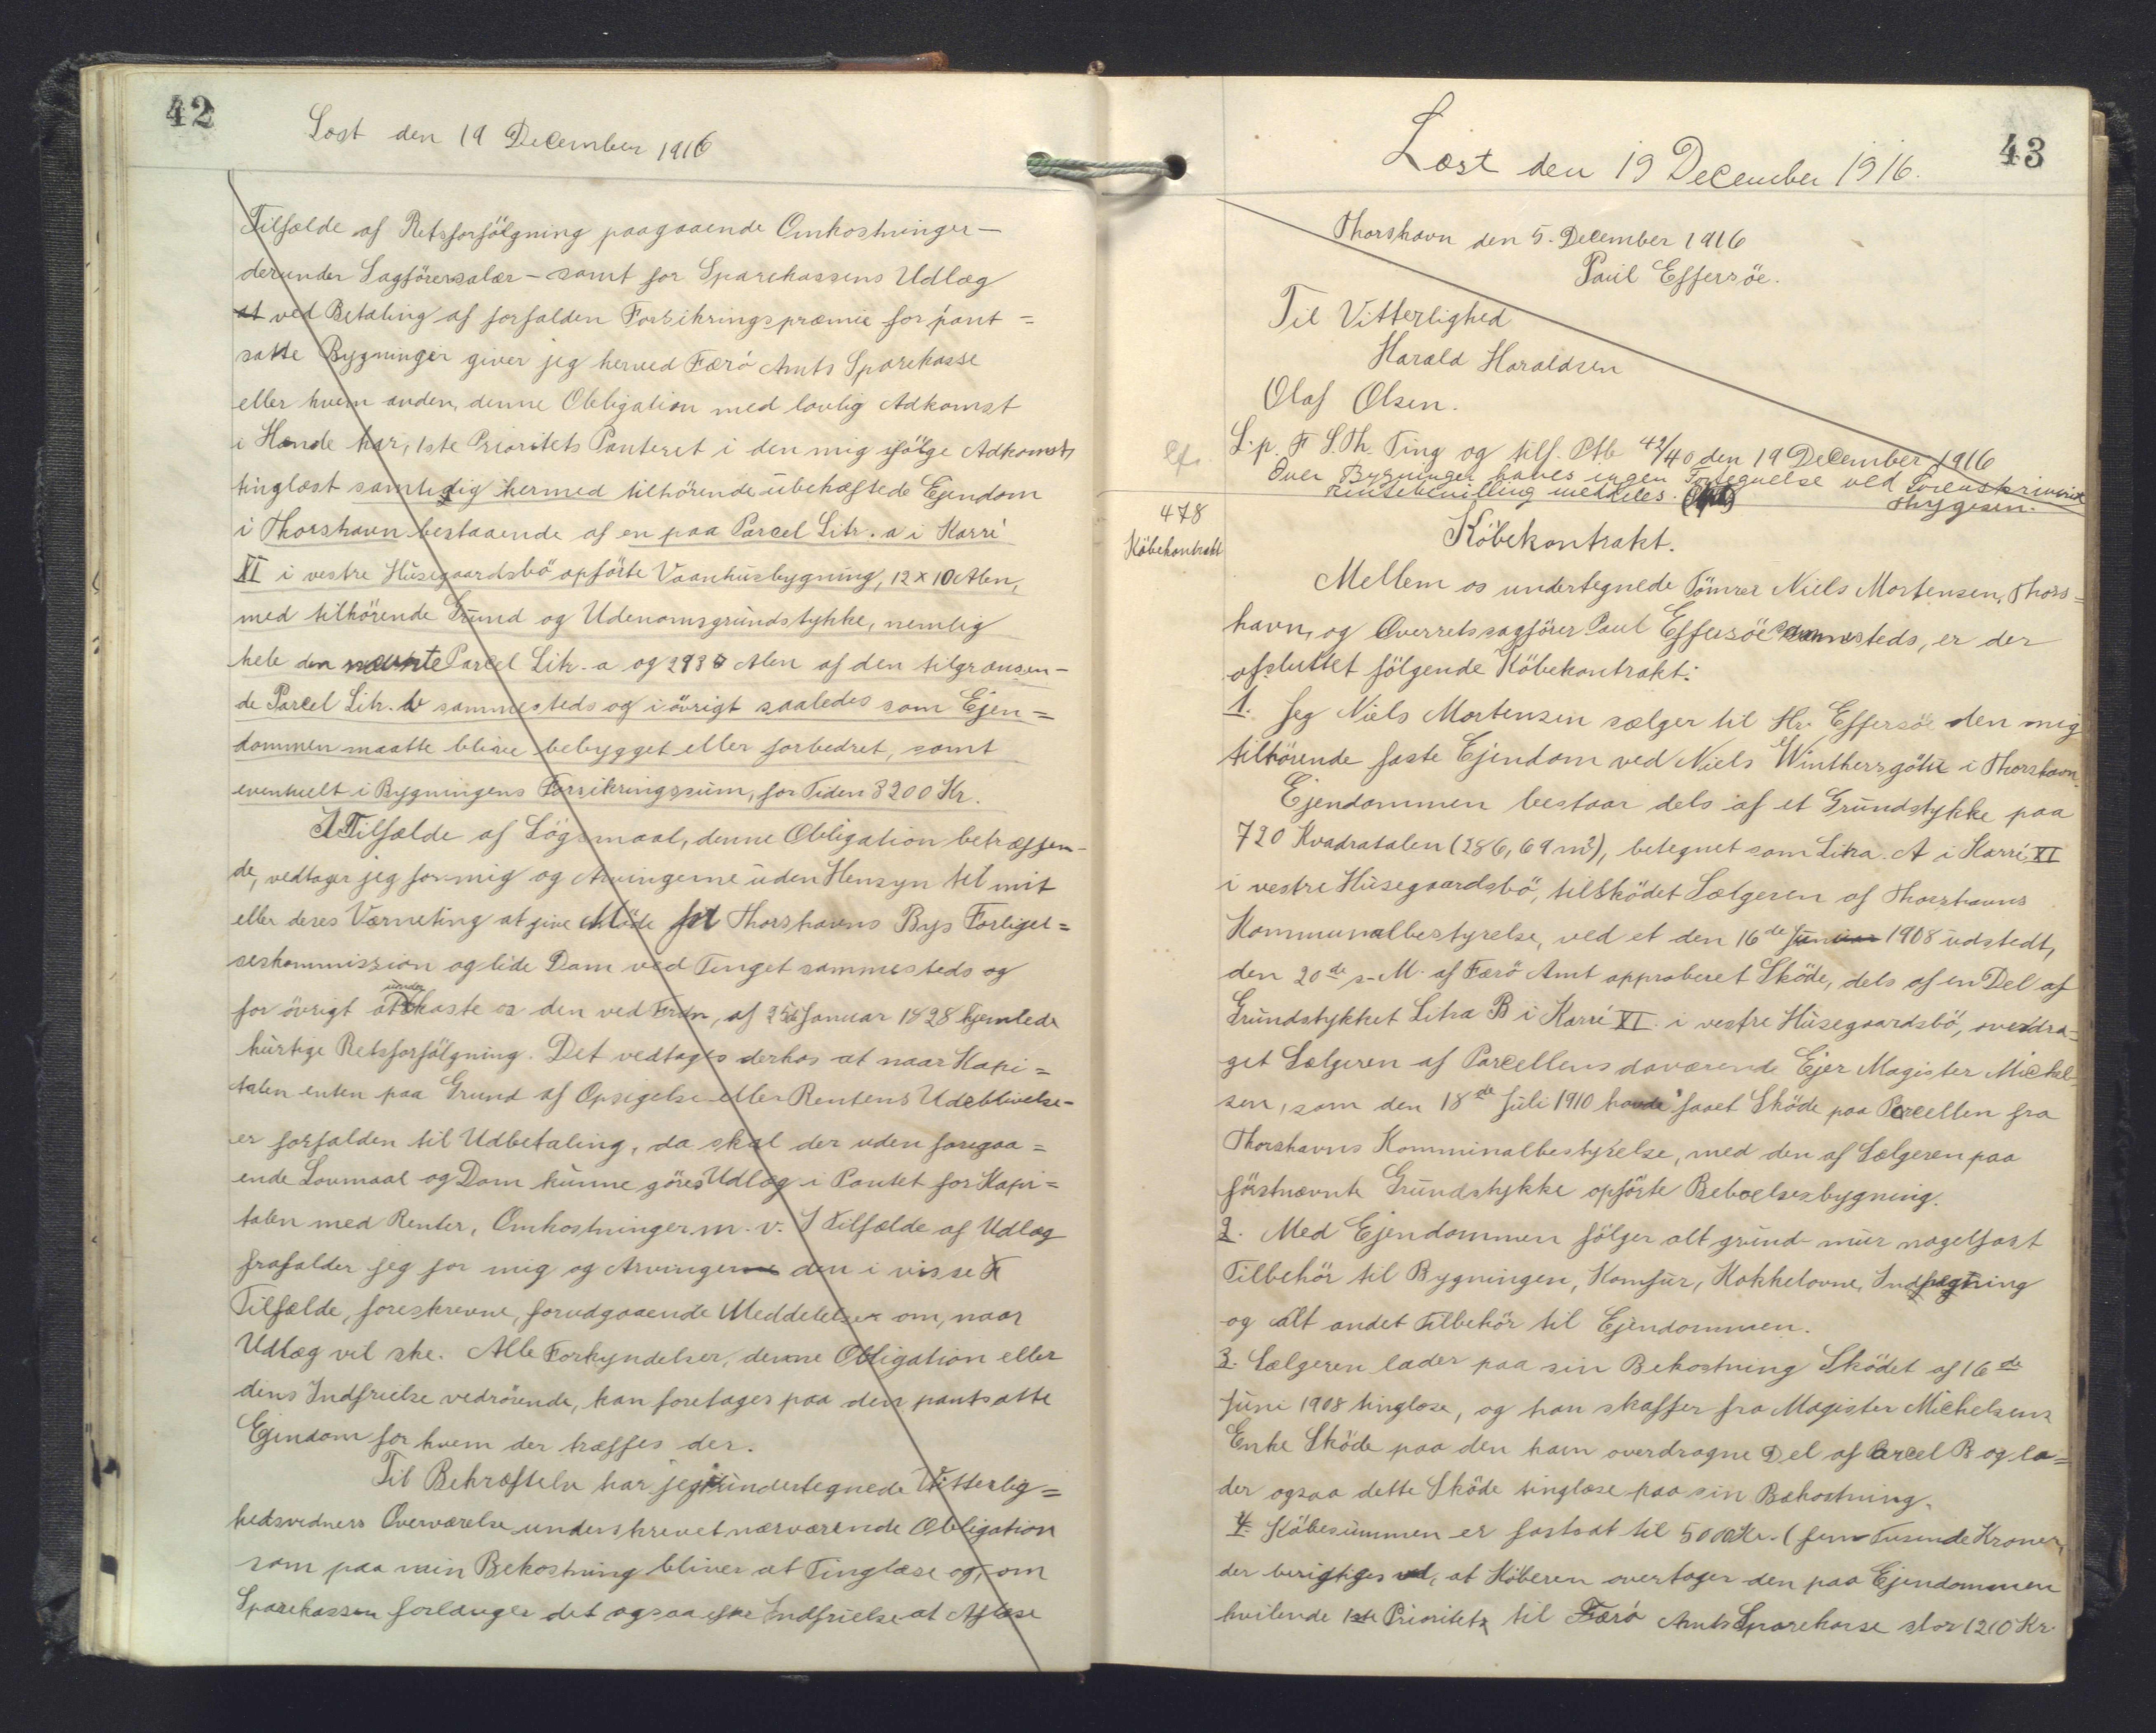 42
Læst den 19 December 1916
Tilfælde af Retsforfölgning paagaaende Omkostninger —
derunder Sagförersalær — samt for Sparekassens Udlæg
at ved Betaling af forfalden Forsikringspræmie for pant=
satte Bygninger giver jeg herved Færö Amts Sparekasse
eller hvem anden, denne Obligation med lovlig Adkomst
i Hænde har, 1ste Prioritets Panteret i den mig ifölge Adkomst
tinglæst samtidig hermed tilhörende ubehæftede Ejendom
i Thorshavn bestaaende af en paa Parcel Litr. a i Karré
XI i vestre Húsegaardsbö opförte Vaanhusbygning, 12 x 10 Alen,
med tilhörende Grund og Udenomsgrundstykke, nemlig
hele den nævnte Parcel Litr. a og 293 Alen af den tilgrænsen-
de Parcel Litr. b sammesteds og i övrigt saaledes som Ejen=
dommen maatte blive bebygget eller forbedret, samt
eventuelt i Bygningens Forsikringssum, for Tiden 3200 Kr.
I Tilfælde af Lögsmaal, denne Obligation betræffen-
de, vedtager jeg for mig og Arvingerne uden Hensyn til mit
eller deres Værneting at give Möde for Thorshavns Bys Forligel=
seskommission og lide Dom ved Tinget sammesteds og
for övrigt underkaste os den ved Frdn, af 25de Januar 1828 hjemlede
hurtige Retsforfölgning. Det vedtages derhos at naar Kapi=
talen enten paa Grund af Opsigelse eller Rentens Udeblivelse-
er forfalden til Udbetaling, da skal der uden foregaa=
ende Lovmaal og Dom kunne göres Udlæg i Pantet for Kapi=
talen med Renter, Omkostninger m. v. I Tilfælde af Udlæg
frafalder jeg for mig og Arvingerne den i visse
Tilfælde, foreskrevne, forudgaaende Meddelelser om, naar
Udlæg vil ske. Alle Forkyndelser, denne Obligation eller
dens Indfrielse vedrörende, kan foretages paa den pantsatte
Ejendom for hvem der træffes der.
Til Bekræftelse har jeg i undertegnede Vitterlig=
hedsvidners Overværelse underskrevet nærværende Obligation
som paa min Bekostning bliver at Tinglæse og, om
Sparekassen forlanger det ogsaa efter Indfrielse at Aflæse
43
Læst den 19 December 1916.
Thorshavn den 5. December 1916
Paul Effersöe.
Til Vitterlighed
Harald Haraldsen
Olaf Olsen.
L. p. F S. Th. Ting og tilf. Ptb 42/40 den 19 December 1916
Over Bygninger haves ingen Fortegnelse ved Sorenskriveriet
Rentebevilling meddeles.
Thygesen.
Cf.
478
Köbekontrakt
Köbekontrakt.
Mellem os undertegnede Tömrer Niels Mortensen, Thors=
havn, og Overretssagförer Paul Effersöe sammesteds, er der
afsluttet fölgende Köbekontrakt:
1. Jeg Niels Mortensen sælger til Hr. Effersöe den mig
tilhörende faste Ejendom ved Niels Winthersgötu i Thorshavn.
Ejendommen bestaar dels af et Grundstykke paa
720 Kvadratalen (286,69 m²), betegnet som Litra. A i Karré XI
i vestre Húsegaardsbö, tilsködet Sælgeren af Thorshavns
Kommunalbestyrelse, ved et den 16de Juni 1908 udstedt,
den 20de s. M. af Færö Amt approberet Sköde, dels af en Del af
Grundstykket Litra B i Karré XI i vestre Húsegaardsbö, overdra=
get Sælgeren af Parcellens daværende Ejer Magister Michel=
sen, som den 18de Juli 1910 havde faaet Sköde paa Parcellen fra
Thorshavns Kommunalbestyrelse, med den af Sælgeren paa
förstnævnte Grundstykke opförte Beboelsesbygning.
2. Med Ejendommen fölger alt grund- mur nagelfast
Tilbehör til Bygningen, Komfur, Kakkelovne, Indhegning
og alt andet Tilbehör til Ejendommen.
3. Sælgeren lader paa sin Bekostning Sködet af 16de
Juni 1908 tinglæse, og han skaffer fra Magister Michelsens
Enke Sköde paa den ham overdragne Del af Parcel B og la=
der ogsaa dette Sköde tinglæse paa sin Bekostning.
4. Köbesummen er fastsat til 5000 Kr. (fem Tusinde Kroner,
der berigtiges ved, at Köberen overtager den paa Ejendommen
hvilende 1ste Prioritets til Færö Amts Sparekasse stor 1210 Kr.